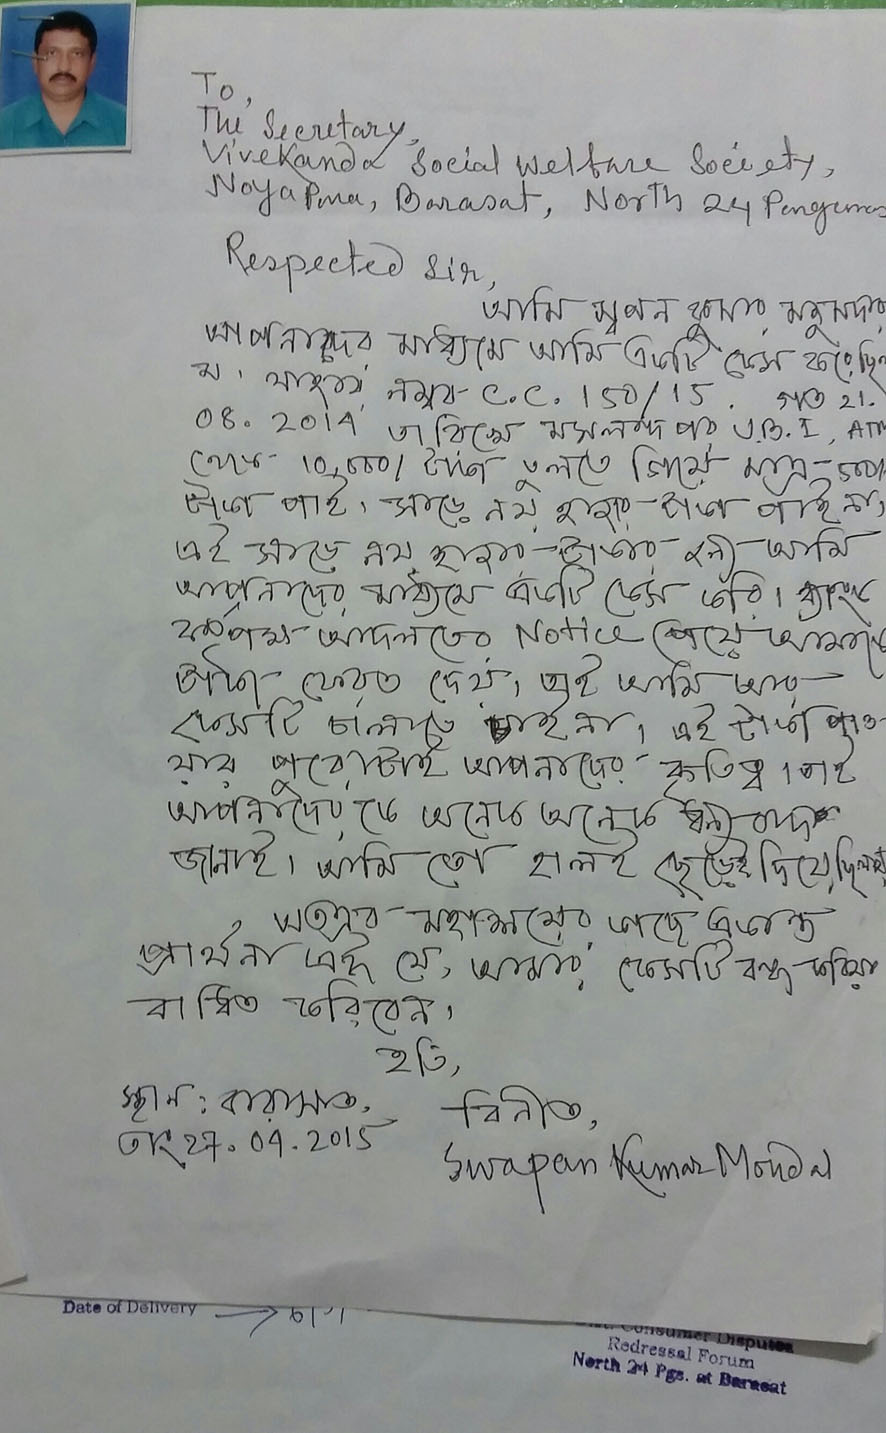 To,
The Secretary,
Vivekanda Social Welfare Society,
Noyapma, Barasat, North 24 Pengunas
Respected Sir,
আমি স্বপন কুমার
আপনাদের মাধ্যমে আমি একটি কেস করেছিলা
ম। যাহার নম্বর C.C. 150/15. গত 21.
08. 2014 তারিখে U.B.I, ATM
থেকে 10,000/ টাকা তুলতে গিয়ে মাত্র 500/
টাকা পাই। সাড়ে নয় হাজার টাকা পাই না,
এই সাড়ে নয় হাজার টাকার জন্য আমি
আপনাদের মাধ্যমে একটি কেস করি। ব্যাংক
কর্তৃপক্ষ আদালতের Notice পেয়ে আমাকে
টাকা ফেরত দেয়, তাই আমি আর
কেসটি চালাতে চাই না, এই টাকা পাও-
য়ার পুরোটাই আপনাদের কৃতিত্ব। তাই
আপনাদের কে অনেক অনেক ধন্যবাদ
জানাই। আমি তো হালই ছেড়েই দিয়েছিলাম,
অতএব মহাশয়ের কাছে একান্ত
প্রার্থনা এই যে, আমার কেসটি বন্ধ করিয়া
বাধিত করিবেন,
ইতি,
স্থান: বারাসাত, বিনীত,
তাং 27. 04. 2015
Swapan Kumar Mondal
Date of Delivery
Dist. Consumer Disputes
Redressal Forum
North 24 Pgs. at Barasat